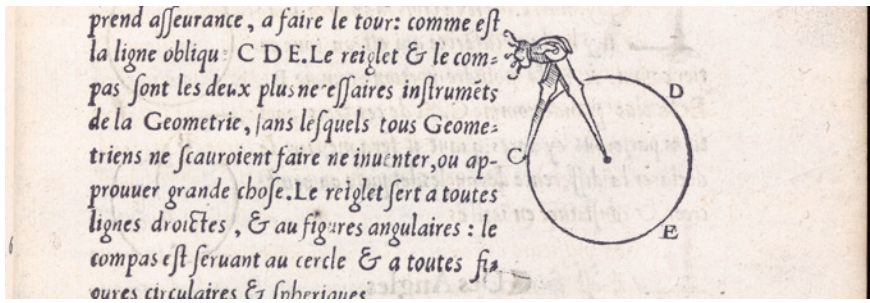 prend aſſeurance, a faire le tour: comme eſt
la ligne obliqu: C D E. Le reiglet & le com-
pas ſont les deux plus ne eſſaires inſtrumēts
de la Geometrie, ſans leſquels tous Geome-
triens ne ſcauroient faire ne inuenter, ou ap-
prouuer grande choſe. Le reiglet ſert a toutes
lignes droictes, & au figures angulaires: le
compas eſt ſeruant au cercle & a toutes fi-
gures circulaires & ſpheriques
D
C
E